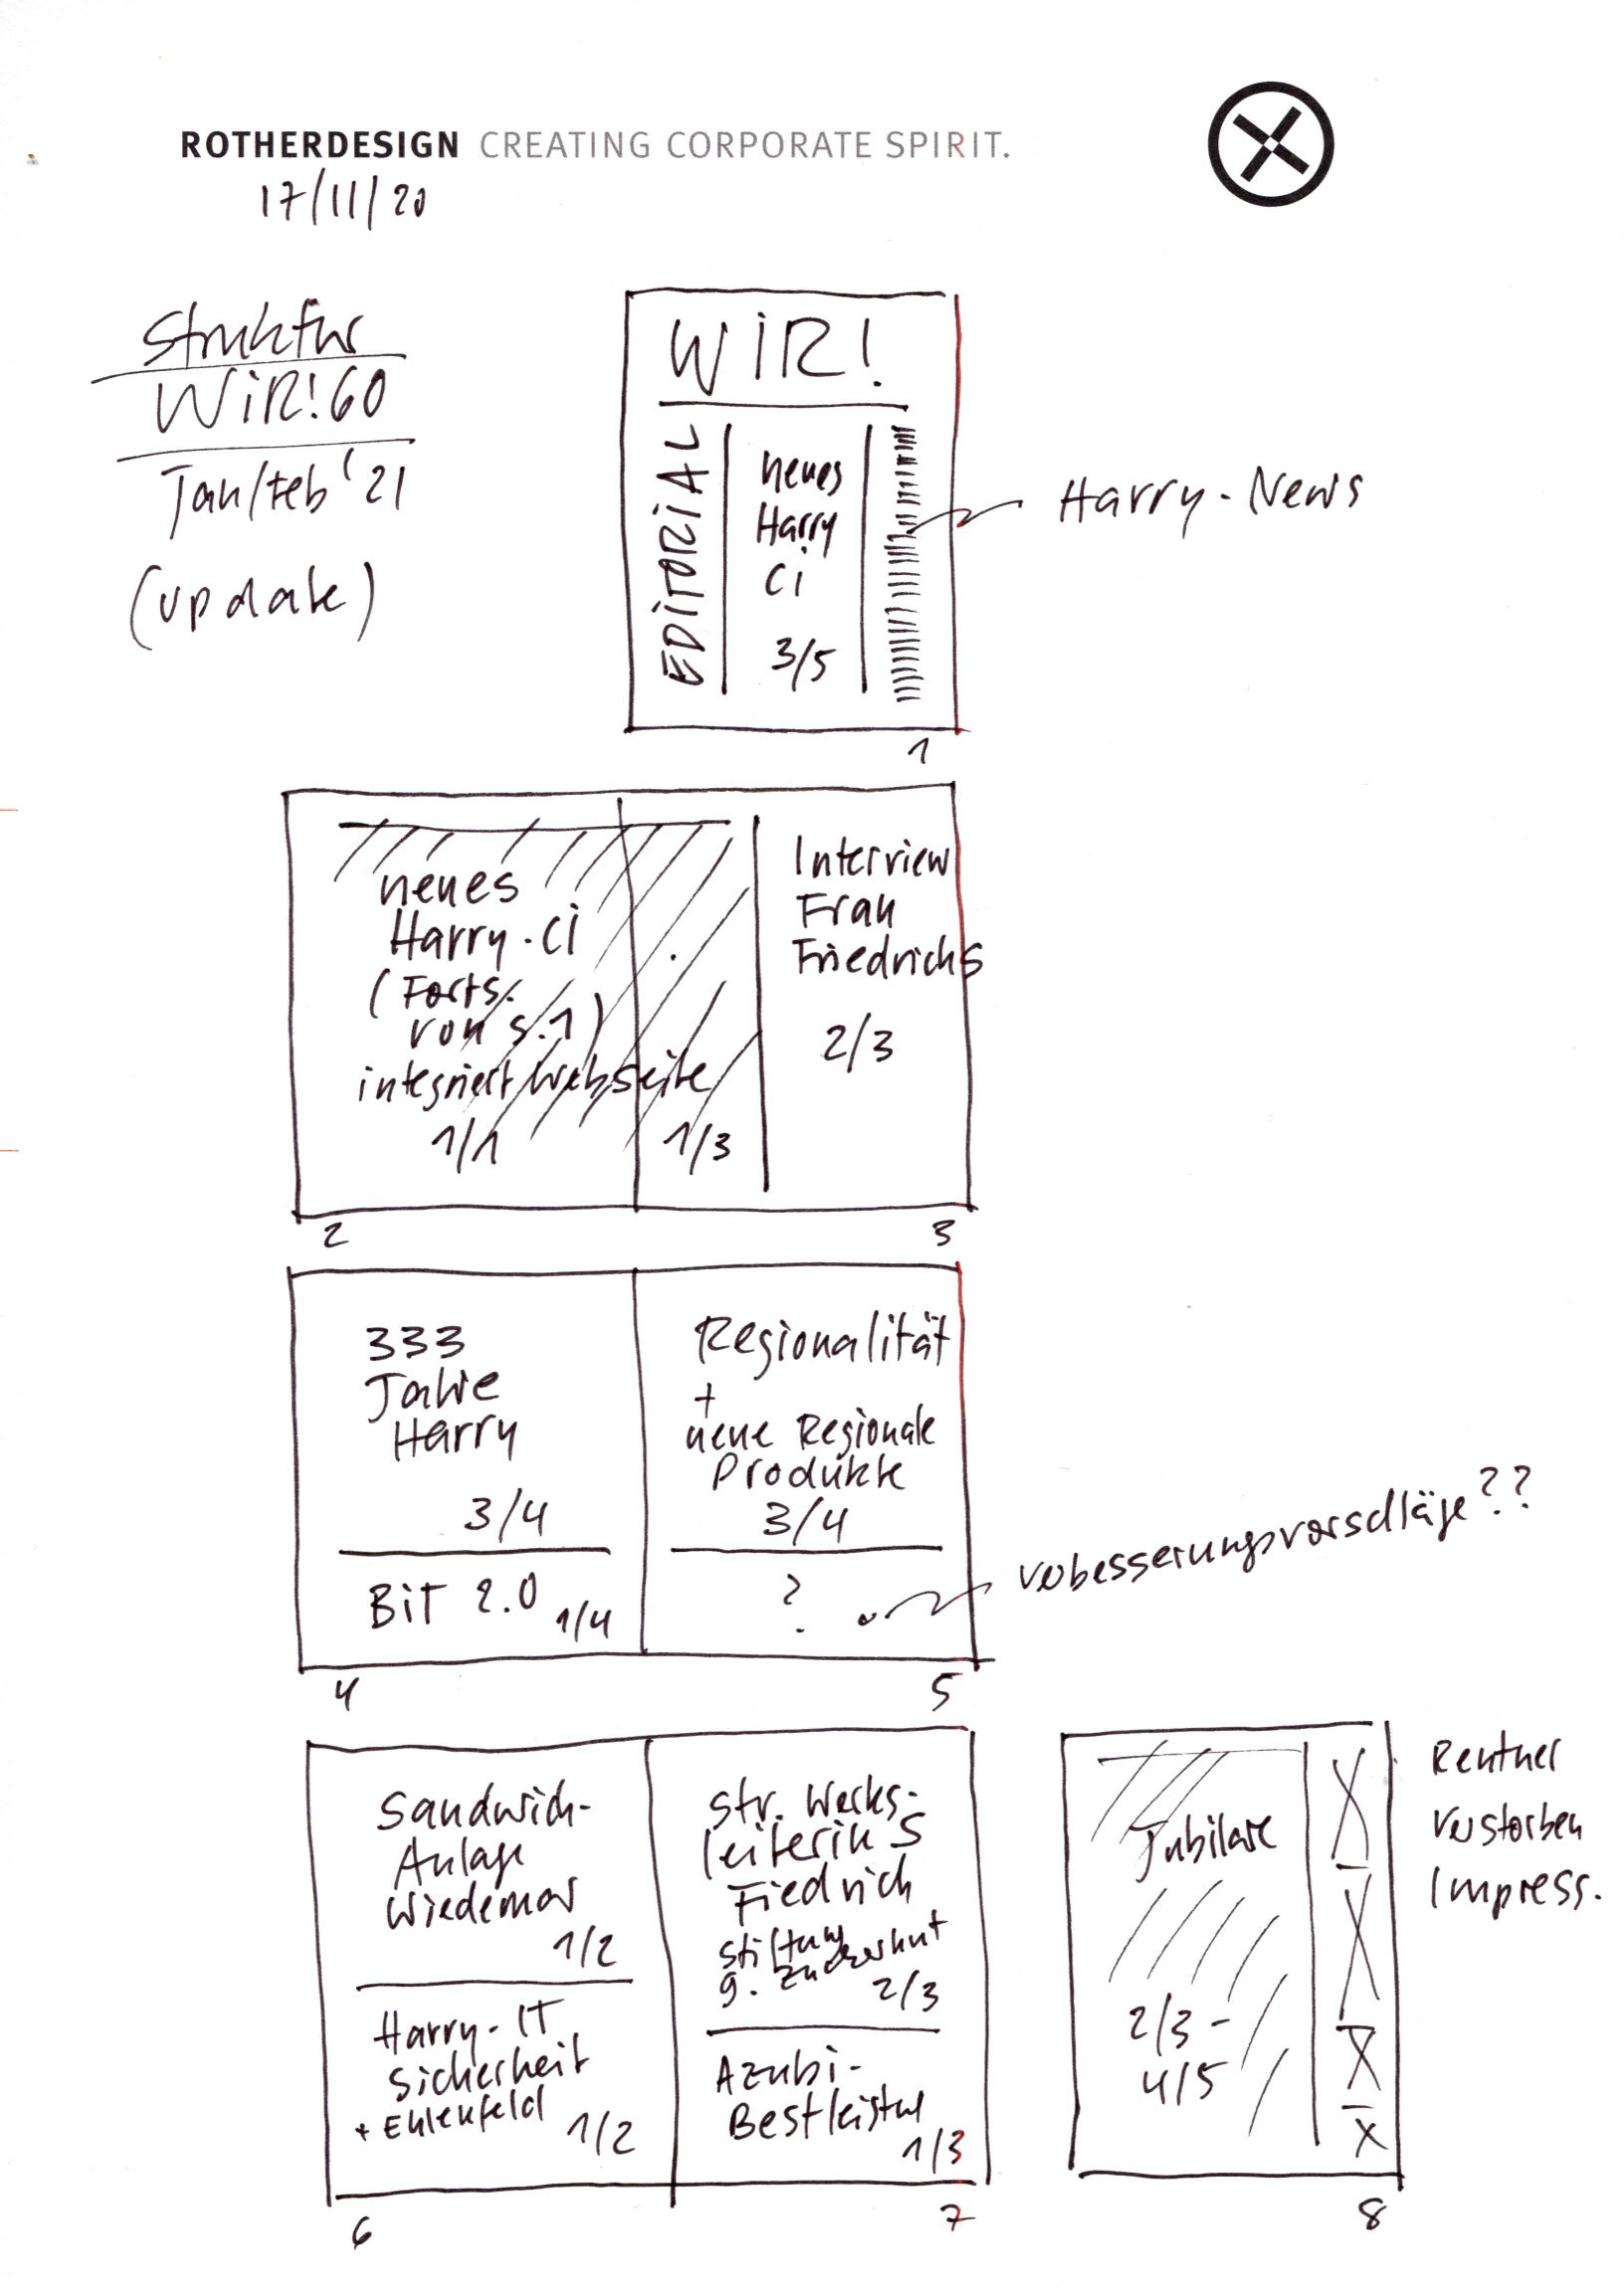 ROTHERDESIGN CREATING CORPORATE SPIRIT.
17/11/20
Struktur
WiR!60
Jan/Feb '21
(update)
WiR!
EDiTORiAL
neues
Harry
Ci
3/5
Harry-News
1
neues
Harry-Ci
(Forts.
von S.1)
integriert Webseite
1/1
1/3
Interview
Frau
Friedrichs
2/3
2
3
333
Jahre
Harry
3/4
BiT 2.0
1/4
Regionalität
+
neue Regionale
Produkte
3/4
?
Verbesserungsvorschläge??
4
5
Sandwich-
Anlage
Wiedemar
1/2
Harry-IT
Sicherheit
+ Euhlenfeld
1/2
Str. Werks-
leiterin S
Friedrich
Stiftung
g. Zuckerhut
2/3
Azubi-
Bestleistung
1/3
6
7
Jubilare
2/3 -
4/5
X
X
X
X
Rentner
Verstorben
Impress.
8